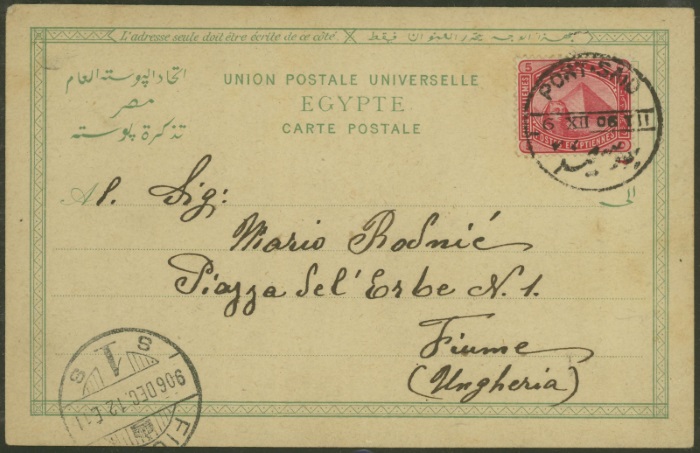 L'adresse seule doit être écrite de ce côté.
اتحاد البوسته العام
مصر
تذكرة بوسته
UNION POSTALE UNIVERSELLE
EGYPTE
CARTE POSTALE
5
PORT-SAID
6 XII 06
Al. Sig:
الى
Mario Rodnić
Piazza del'Erbe N. 1.
Fiume
(Ungheria)
906 DEC. 12
FIU